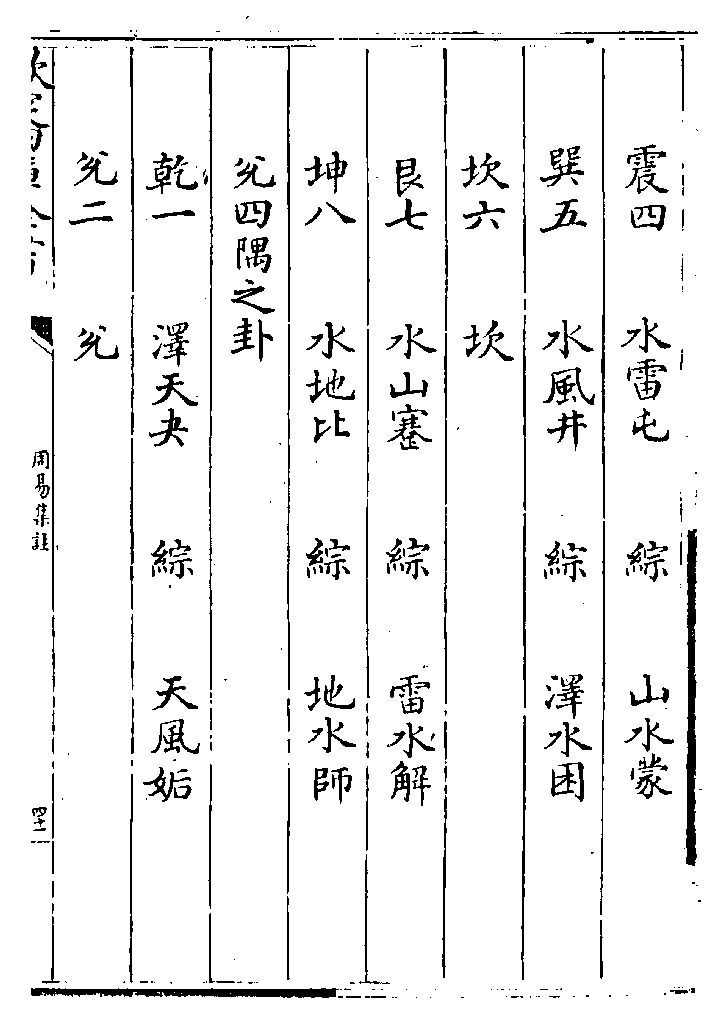 震四 水雷屯 綜 山水蒙
巽五 水風井 綜 澤水困
坎六 坎
艮七 水山蹇 綜 雷水解
坤八 水地比 綜 地水師
兊四隅之卦
乾一 澤天夬 綜 天風姤
兊二 兊
周易集註